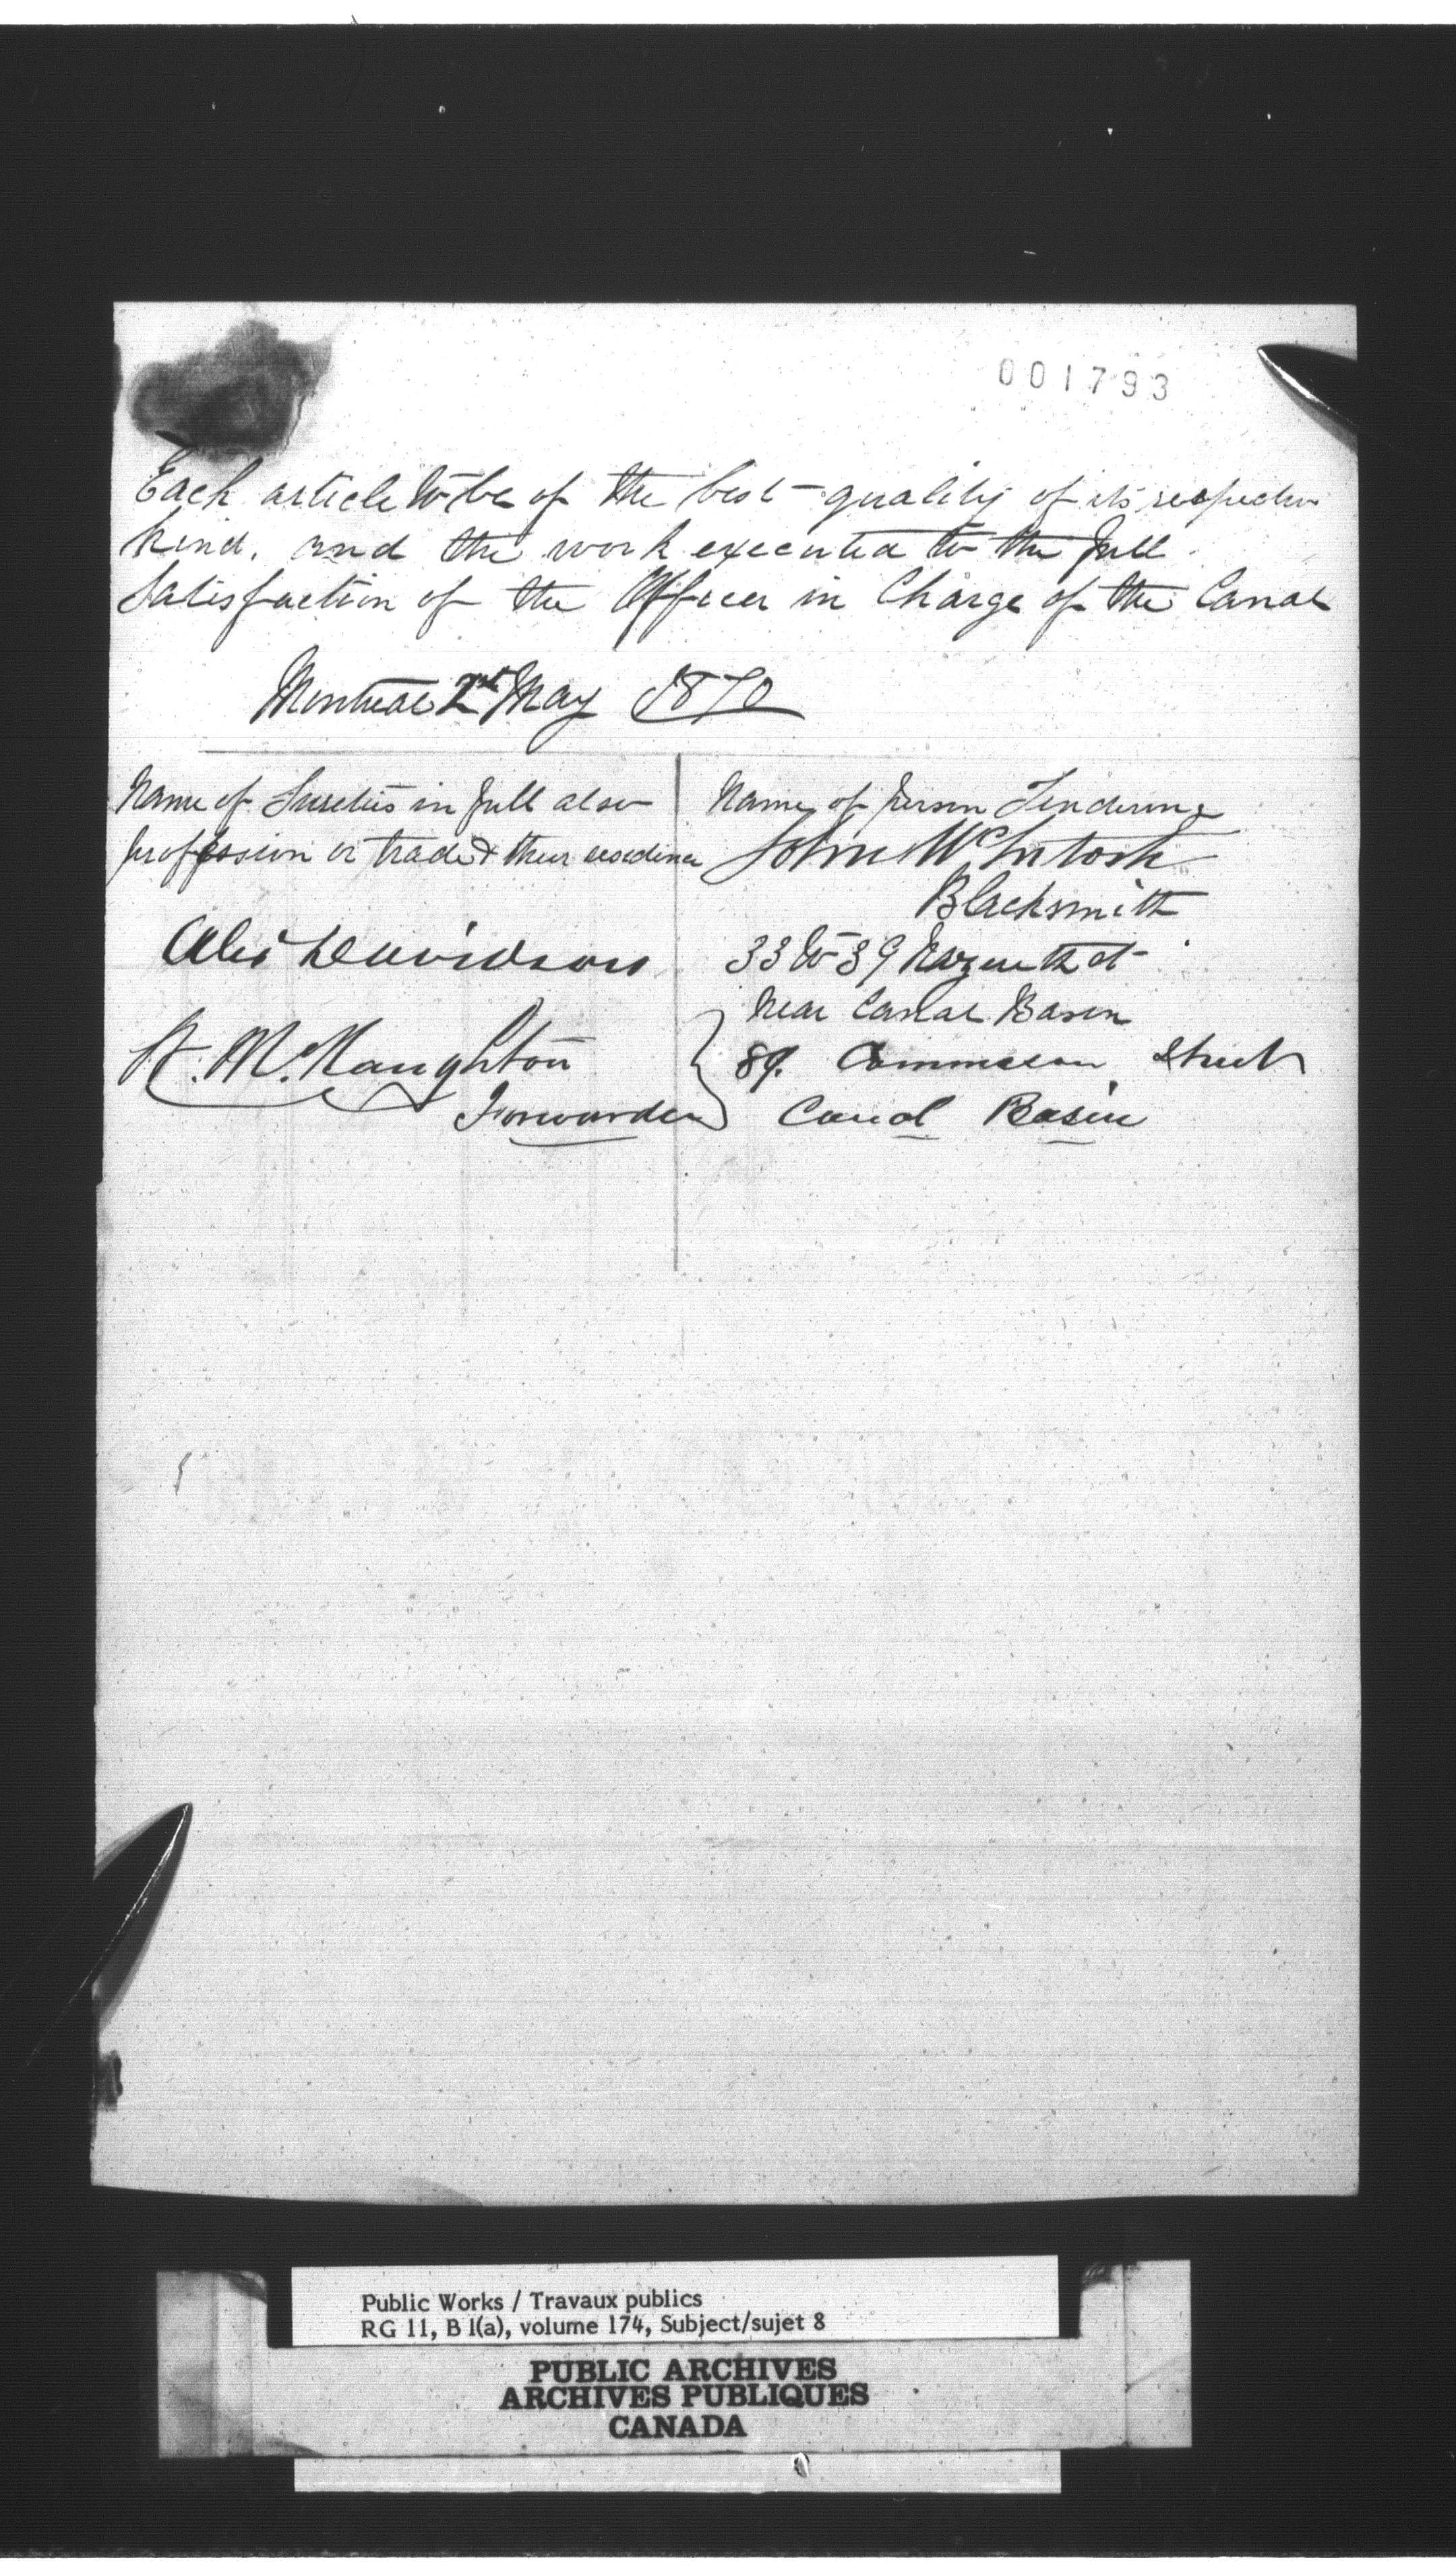 001793
Each article to be of the best quality of its respective
kind. and the work executed to the full
Satisfaction of the Officer in Charge of the Canal
Montreal 2nd May 1870
Name of Sureties in full also
profession or trade & their residence
Alex Davidson
McNaughton
Forwarder
Name of person Tendering
John McIntosh
Blacksmith
33 to 39 Nazareth st
Near Canal Basin
89. Common Street
Canal Basin
Public Works / Travaux publics
RG 11, B 1(a), volume 174, Subject/sujet 8
PUBLIC ARCHIVES
ARCHIVES PUBLIQUES
CANADA